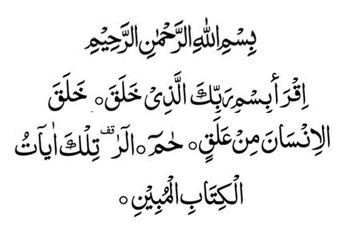 بِسْمِ اللهِ الرَّحْمٰنِ الرَّحِيْمِ
اِقْرَأْ بِسْمِ رَبِّكَ الَّذِىْ خَلَقَ ۝ خَلَقَ
الْاِنْسَانَ مِنْ عَلَقٍ ۝ حٰمٓ ۝ الٓرٰ ۚقف تِلْكَ اٰيَاتُ
الْكِتَابِ الْمُبِيْنِ ۝